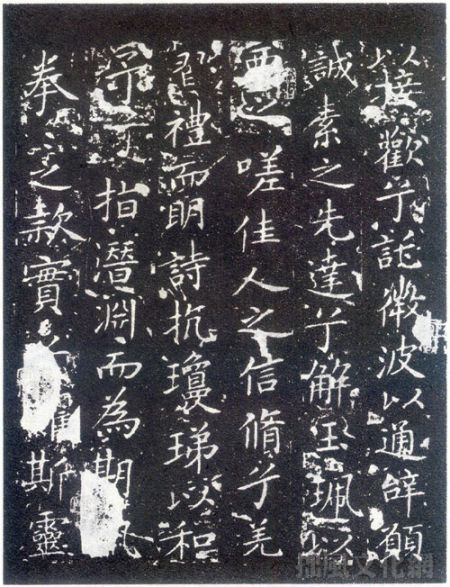 以接歡兮託微波以通辭願
誠素之先達兮解玉珮以
要之嗟佳人之信脩兮羌
習禮而明詩抗瓊珶以和
予兮指潛淵而為期執
拳々之款實兮懼斯靈
拙風文化網